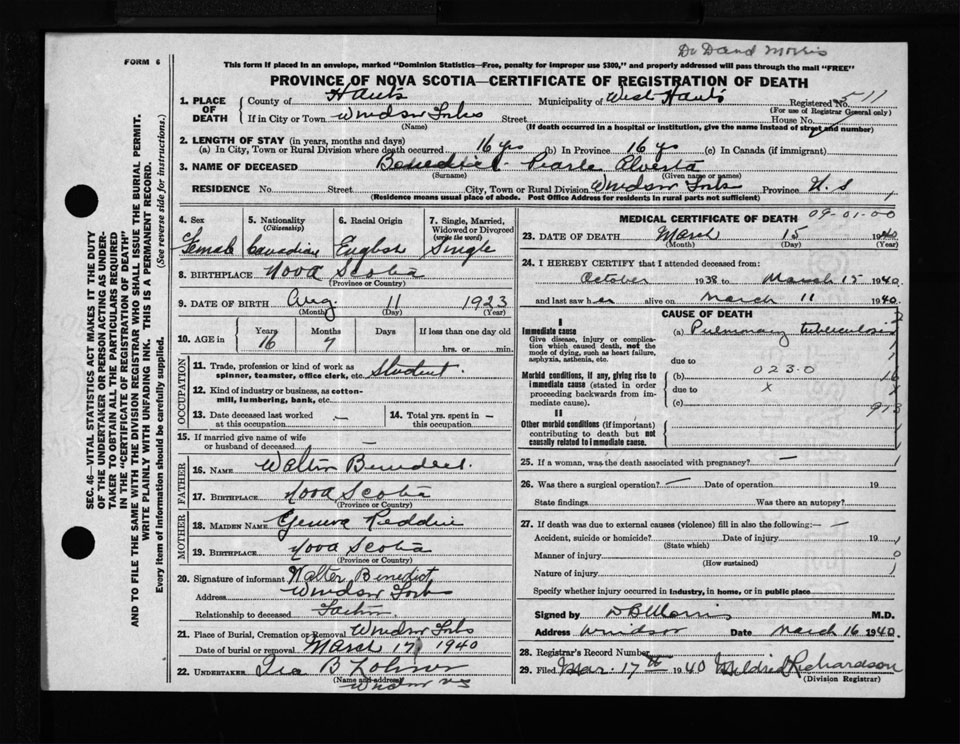 Dr David Morris
FORM 6
This form if placed in an envelope, marked "Dominion Statistics—Free, penalty for improper use $300," and properly addressed will pass through the mail "FREE"
PROVINCE OF NOVA SCOTIA—CERTIFICATE OF REGISTRATION OF DEATH
1. PLACE OF DEATH
County of Hants Municipality of West Hants Registered No. 511
(For use of Registrar General only)
If in City or Town Windsor Forks Street House No.
(Name) (If death occurred in a hospital or institution, give the name instead of street and number)
2. LENGTH OF STAY (in years, months and days)
(a) In City, Town or Rural Division where death occurred 16 yrs (b) In Province 16 yrs (c) In Canada (if immigrant)
3. NAME OF DECEASED Benedict Pearle Alverta
(Surname) (Given name or names)
RESIDENCE No. Street City, Town or Rural Division Windsor Forks Province N.S
(Residence means usual place of abode. Post Office Address for residents in rural parts not sufficient) 1
4. Sex Female
5. Nationality (Citizenship) Canadian
6. Racial Origin English
7. Single, Married, Widowed or Divorced (write the word) Single
8. BIRTHPLACE Nova Scotia
(Province or Country)
9. DATE OF BIRTH Aug. 11 1923
(Month) (Day) (Year)
10. AGE in Years 16 Months 7 Days If less than one day old hrs. or min.
OCCUPATION
11. Trade, profession or kind of work as spinner, teamster, office clerk, etc. Student.
12. Kind of industry or business, as cotton-mill, lumbering, bank, etc.
13. Date deceased last worked at this occupation —
14. Total yrs. spent in this occupation —
15. If married give name of wife or husband of deceased —
FATHER
16. NAME Walter Benedict.
17. BIRTHPLACE Nova Scotia
(Province or Country)
MOTHER
18. MAIDEN NAME Geneva Reddin
19. BIRTHPLACE Nova Scotia
(Province or Country)
20. Signature of informant Walter Benedict
Address Windsor Forks
Relationship to deceased Father
21. Place of Burial, Cremation or Removal Windsor Forks
Date of burial or removal March 17 1940
22. UNDERTAKER Ira B
(Name and address) Windsor NS
MEDICAL CERTIFICATE OF DEATH 09-01-00
23. DATE OF DEATH March 15 1940
(Month) (Day) (Year)
24. I HEREBY CERTIFY that I attended deceased from:
October 1938 to March 15 1940
and last saw her alive on March 11 1940.
CAUSE OF DEATH
I
Immediate cause
Give disease, injury or complication which caused death, not the mode of dying, such as heart failure, asphyxia, asthenia, etc.
(a) Pulmonary tuberculosis
due to
Morbid conditions, if any, giving rise to immediate cause (stated in order proceeding backwards from immediate cause).
023.0
(b)
due to x
(c)
II
Other morbid conditions (if important) contributing to death but not causally related to immediate cause.
25. If a woman, was the death associated with pregnancy? —
26. Was there a surgical operation? — Date of operation 19
State findings Was there an autopsy?
27. If death was due to external causes (violence) fill in also the following:— —
Accident, suicide or homicide? Date of injury 19
(State which)
Manner of injury
(How sustained)
Nature of injury
Specify whether injury occurred in industry, in home, or in public place
Signed by D B Morris M.D.
Address Windsor Date March 16 1940.
28. Registrar's Record Number
29. Filed Mar. 17th 1940 Mildred Richardson
(Division Registrar)
SEC. 46—VITAL STATISTICS ACT MAKES IT THE DUTY
OF THE UNDERTAKER OR PERSON ACTING AS UNDER-
TAKER TO OBTAIN ALL THE PARTICULARS REQUIRED
IN THE "CERTIFICATE OF REGISTRATION OF DEATH"
AND TO FILE THE SAME WITH THE DIVISION REGISTRAR WHO SHALL ISSUE THE BURIAL PERMIT.
WRITE PLAINLY WITH UNFADING INK. THIS IS A PERMANENT RECORD.
Every item of information should be carefully supplied. (See reverse side for instructions.)